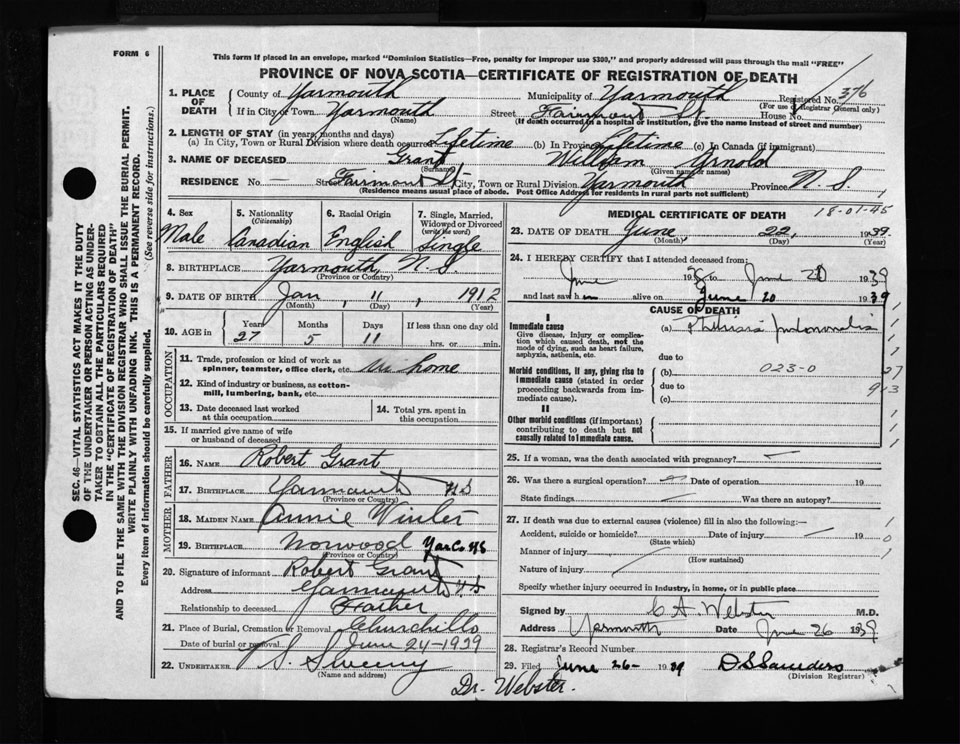 FORM 6
This form if placed in an envelope, marked "Dominion Statistics—Free, penalty for improper use $300," and properly addressed will pass through the mail "FREE"
PROVINCE OF NOVA SCOTIA—CERTIFICATE OF REGISTRATION OF DEATH
1. PLACE OF DEATH County of Yarmouth Municipality of Yarmouth Registered No. 376
(For use of Registrar General only)
If in City or Town Yarmouth (Name) Street Fairmount St. House No.
(If death occurred in a hospital or institution, give the name instead of street and number)
2. LENGTH OF STAY (in years, months and days)
(a) In City, Town or Rural Division where death occurred Lifetime (b) In Province Lifetime (c) In Canada (if immigrant)
3. NAME OF DECEASED Grant (Surname) William Arnold (Given name or names)
RESIDENCE No. — Street Fairmount St City, Town or Rural Division Yarmouth Province N.S.
(Residence means usual place of abode. Post Office Address for residents in rural parts not sufficient)
4. Sex Male
5. Nationality (Citizenship) Canadian
6. Racial Origin English
7. Single, Married, Widowed or Divorced (write the word) Single
8. BIRTHPLACE Yarmouth, N.S.
(Province or Country)
9. DATE OF BIRTH Jan 11 1912
(Month) (Day) (Year)
10. AGE in Years 27 Months 5 Days 11 If less than one day old hrs. or min.
OCCUPATION
11. Trade, profession or kind of work as spinner, teamster, office clerk, etc. home
12. Kind of industry or business, as cotton-mill, lumbering, bank, etc.
13. Date deceased last worked at this occupation
14. Total yrs. spent in this occupation
15. If married give name of wife or husband of deceased
FATHER
16. NAME Robert Grant
17. BIRTHPLACE Yarmouth NS
(Province or Country)
MOTHER
18. MAIDEN NAME Annie Winter
19. BIRTHPLACE Norwood Yar Co NS
(Province or Country)
20. Signature of informant Robert Grant
Address Yarmouth NS
Relationship to deceased Father
21. Place of Burial, Cremation or Removal
Date of burial or removal June 24-1939
22. UNDERTAKER Sweeny
(Name and address)
Dr. Webster.
MEDICAL CERTIFICATE OF DEATH
18-01-45
23. DATE OF DEATH June 22, 1939
(Month) (Day) (Year)
24. I HEREBY CERTIFY that I attended deceased from:
June 193 to June 1939
and last saw h alive on June 20 1939
CAUSE OF DEATH
I
Immediate cause
Give disease, injury or complication which caused death, not the mode of dying, such as heart failure, asphyxia, asthenia, etc.
(a) Phthisis pulmonalis
due to
Morbid conditions, if any, giving rise to immediate cause (stated in order proceeding backwards from immediate cause).
(b) 023-0
due to
(c)
27
9-3
II
Other morbid conditions (if important) contributing to death but not causally related to immediate cause.
25. If a woman, was the death associated with pregnancy?
26. Was there a surgical operation? Date of operation 19
State findings Was there an autopsy?
27. If death was due to external causes (violence) fill in also the following:—
Accident, suicide or homicide? Date of injury 19
(State which)
Manner of injury
(How sustained)
Nature of injury
Specify whether injury occurred in industry, in home, or in public place
Signed by C A Webster M.D.
Address Yarmouth Date June 26 1939
28. Registrar's Record Number
29. Filed June 26- 1939 D S Saunders
(Division Registrar)
SEC. 46—VITAL STATISTICS ACT MAKES IT THE DUTY OF THE UNDERTAKER OR PERSON ACTING AS UNDERTAKER TO OBTAIN ALL THE PARTICULARS REQUIRED IN THE "CERTIFICATE OF REGISTRATION OF DEATH"
AND TO FILE THE SAME WITH THE DIVISION REGISTRAR WHO SHALL ISSUE THE BURIAL PERMIT.
WRITE PLAINLY WITH UNFADING INK. THIS IS A PERMANENT RECORD.
Every item of information should be carefully supplied. (See reverse side for instructions.)